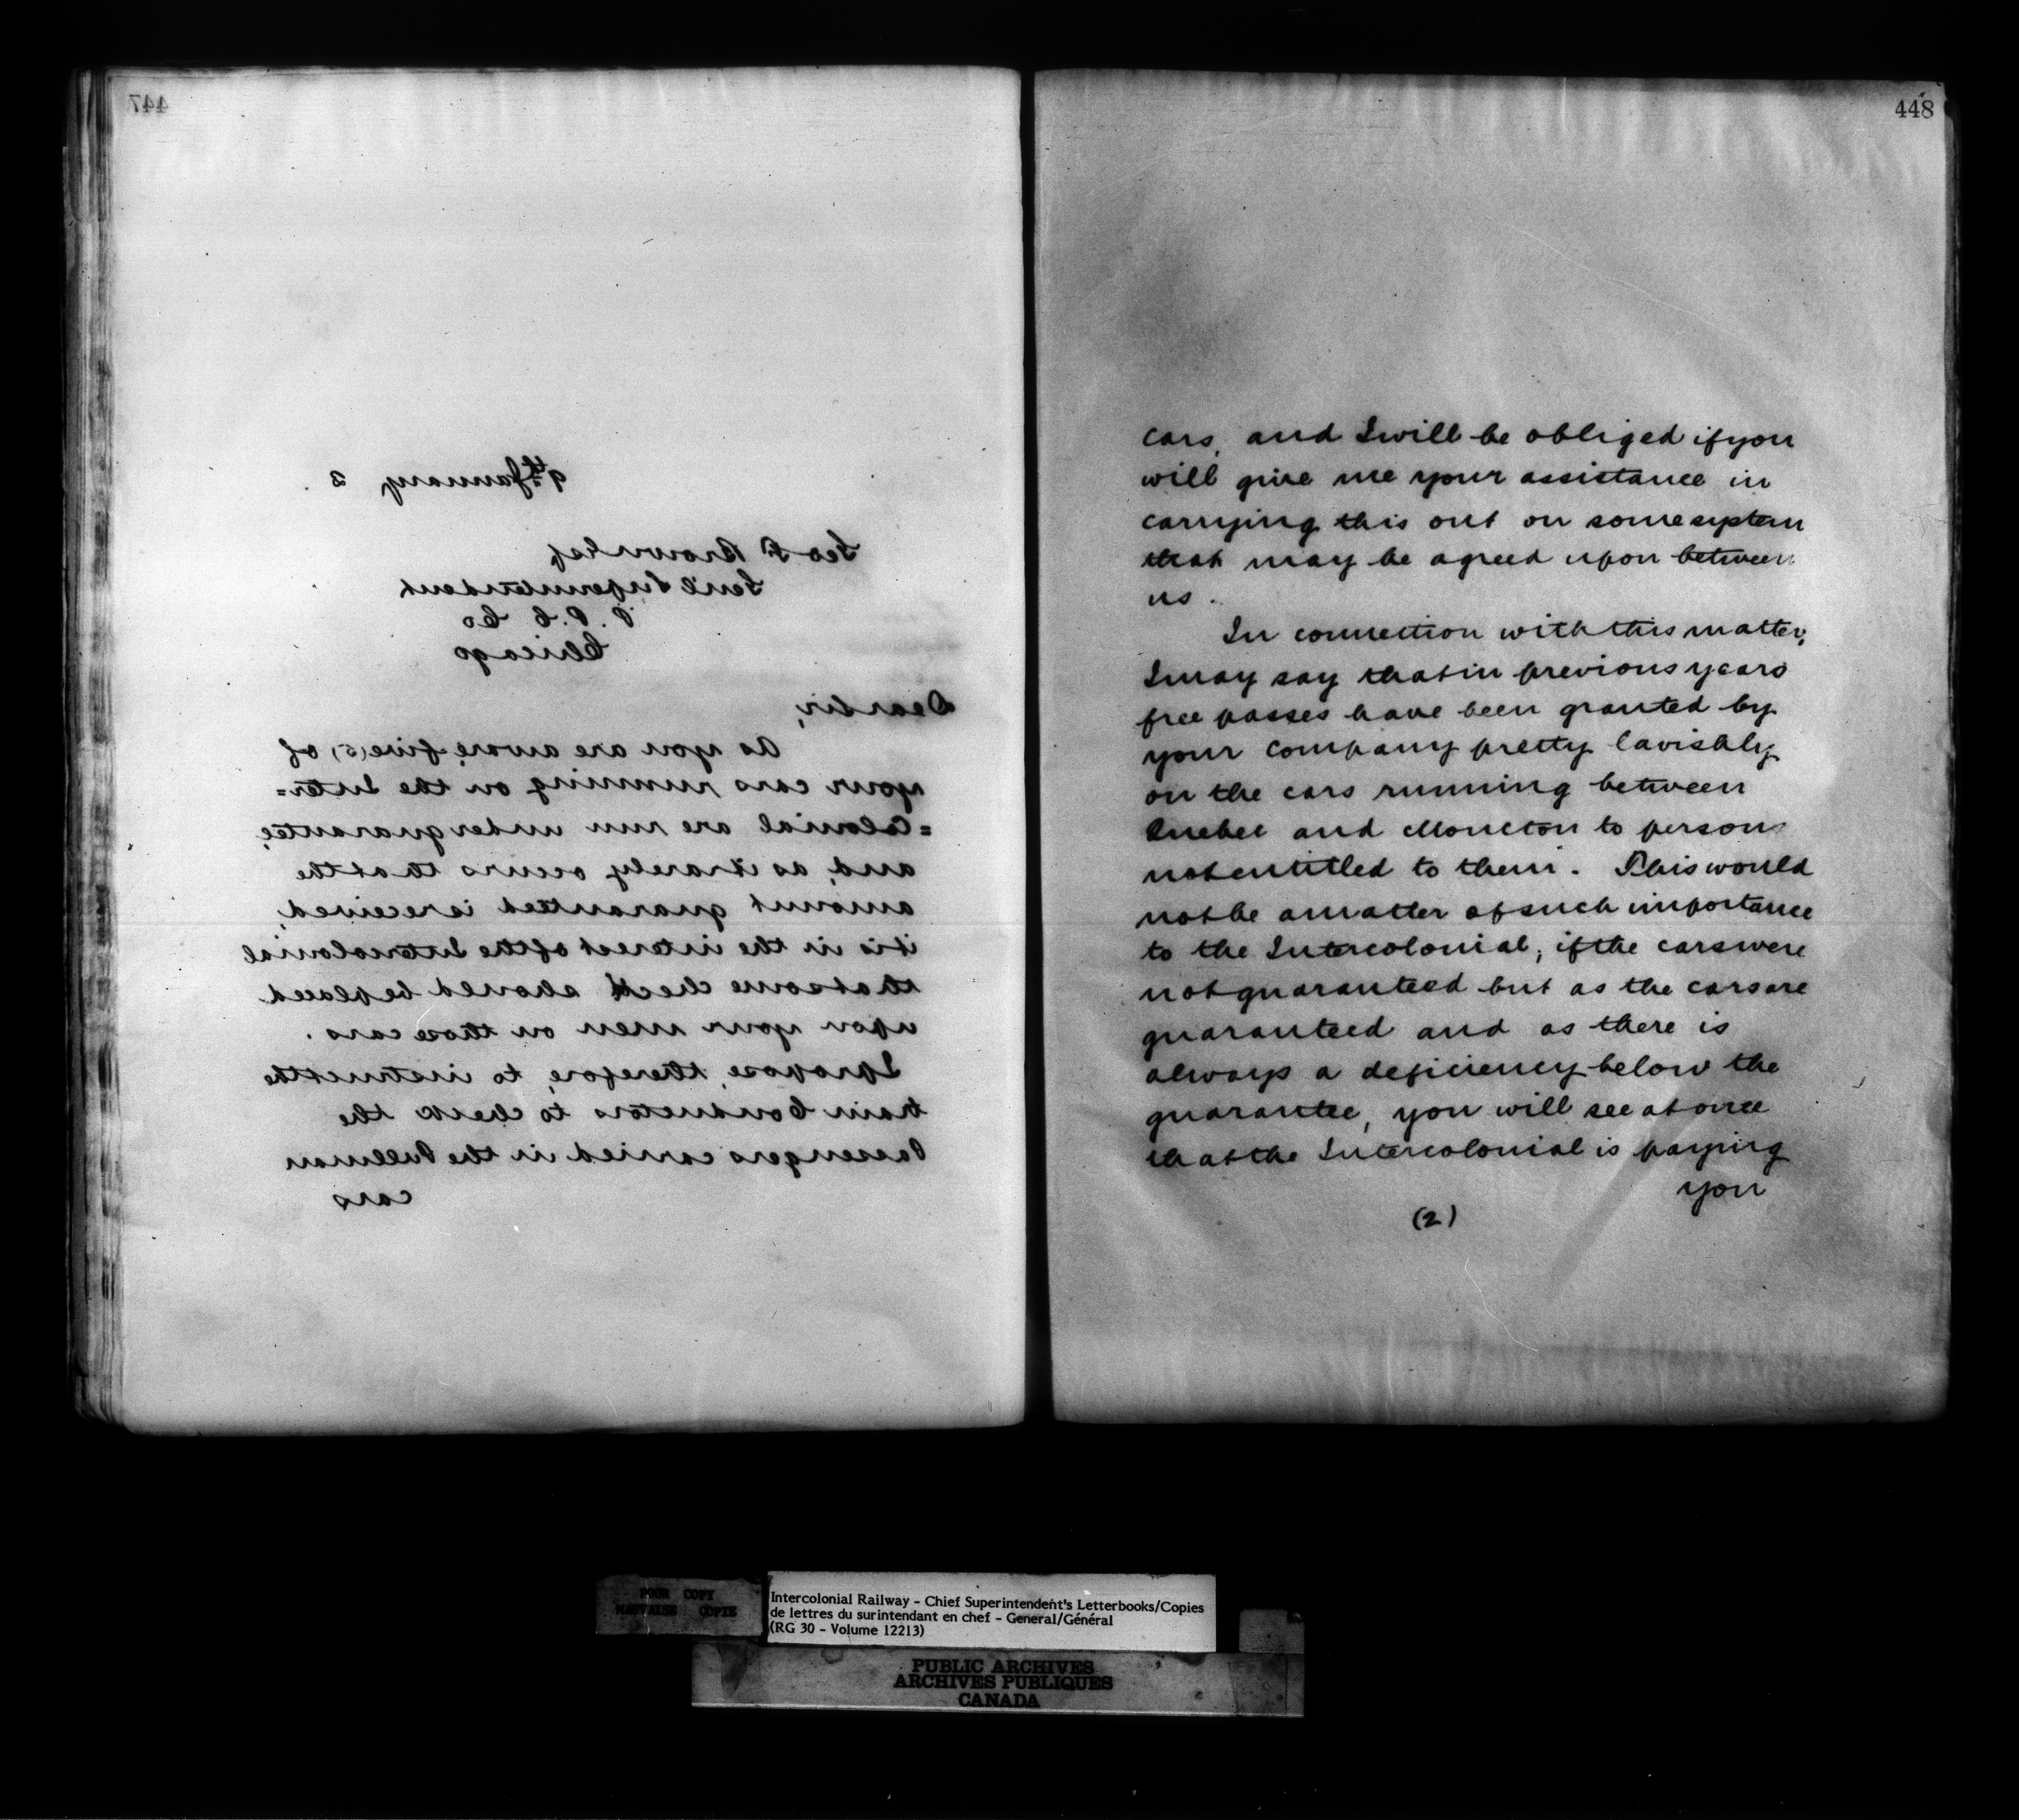 447
9th January 3
Geo F Brown Esq
Gen'l Superintendent
P. P. C Co
Chicago
Dear Sir,
As you are aware, five (5) of
your cars running on the Inter=
=Colonial are run under guarantee,
and, as it rarely occurs that the
amount guaranteed is received,
it is in the interest of the Intercolonial
that some check should be placed
upon your men on those cars.
I propose, therefore, to instruct the
train Conductors to check the
Passengers carried in the Pullman
cars
448
cars, and I will be obliged if you
will give me your assistance in
carrying this out on some system
that may be agreed upon between
us.
In connection with this matter,
I may say that in previous years
free passes have been granted by
your Company pretty lavishly
on the cars running between
Quebec and Moncton to persons
not entitled to them. This would
not be a matter of such importance
to the Intercolonial, if the cars were
not guaranteed but as the cars are
guaranteed and as there is
always a deficiency below the
guarantee, you will see at once
that the Intercolonial is paying
you
(2)
POOR COPY
MAUVAISE COPIE
Intercolonial Railway - Chief Superintendent's Letterbooks/Copies
de lettres du surintendant en chef - General/Général
(RG 30 - Volume 12213)
PUBLIC ARCHIVES
ARCHIVES PUBLIQUES
CANADA